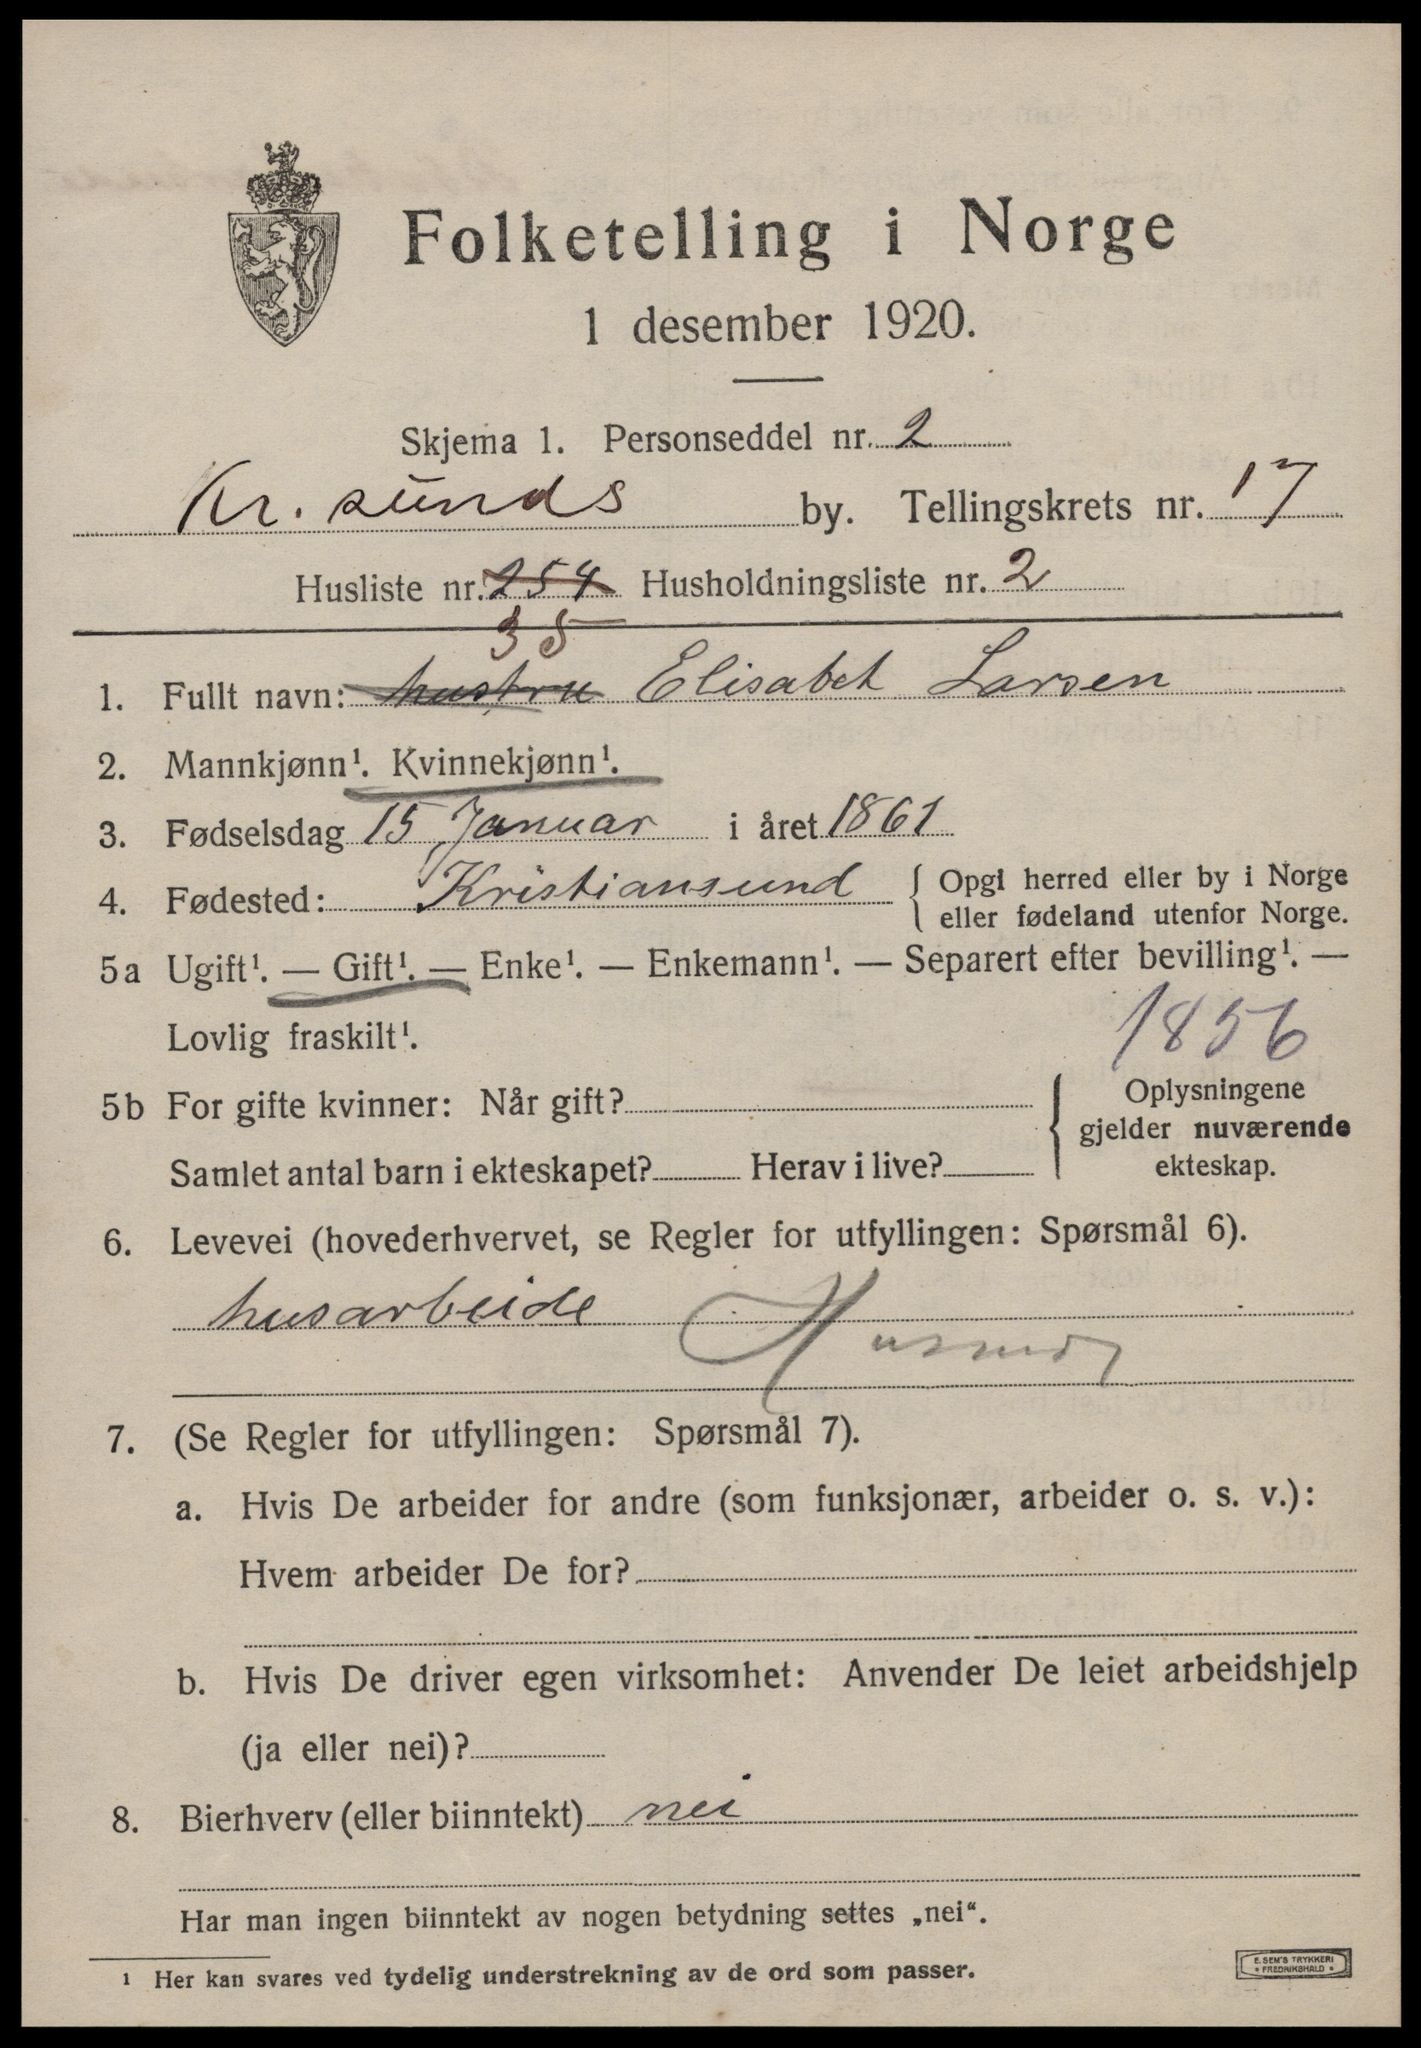 Folketelling i Norge
1 desember 1920.
Skjema 1. Personseddel nr. 2
Kr. sunds by. Tellingskrets nr. 17
Husliste nr. 254 Husholdningsliste nr. 2
35
1. Fullt navn: hustru Elisabet Larsen
2. Mannkjønn¹. Kvinnekjønn¹.
3. Fødselsdag 15 Januar i året 1861
4. Fødested: Kristiansund { Opgi herred eller by i Norge
eller fødeland utenfor Norge.
5a Ugift¹. — Gift¹. — Enke¹. — Enkemann¹. — Separert efter bevilling¹. —
Lovlig fraskilt¹.
1856
5b For gifte kvinner: Når gift?
Samlet antal barn i ekteskapet? Herav i live?
{ Oplysningene
gjelder nuværende
ekteskap.
6. Levevei (hovederhvervet, se Regler for utfyllingen: Spørsmål 6).
husarbeide
7. (Se Regler for utfyllingen: Spørsmål 7).
a. Hvis De arbeider for andre (som funksjonær, arbeider o. s. v.):
Hvem arbeider De for?
b. Hvis De driver egen virksomhet: Anvender De leiet arbeidshjelp
(ja eller nei)?
8. Bierhverv (eller biinntekt) nei
Har man ingen biinntekt av nogen betydning settes „nei“.
¹ Her kan svares ved tydelig understrekning av de ord som passer.
E. SEM'S TRYKKERI
* FREDRIKSHALD *